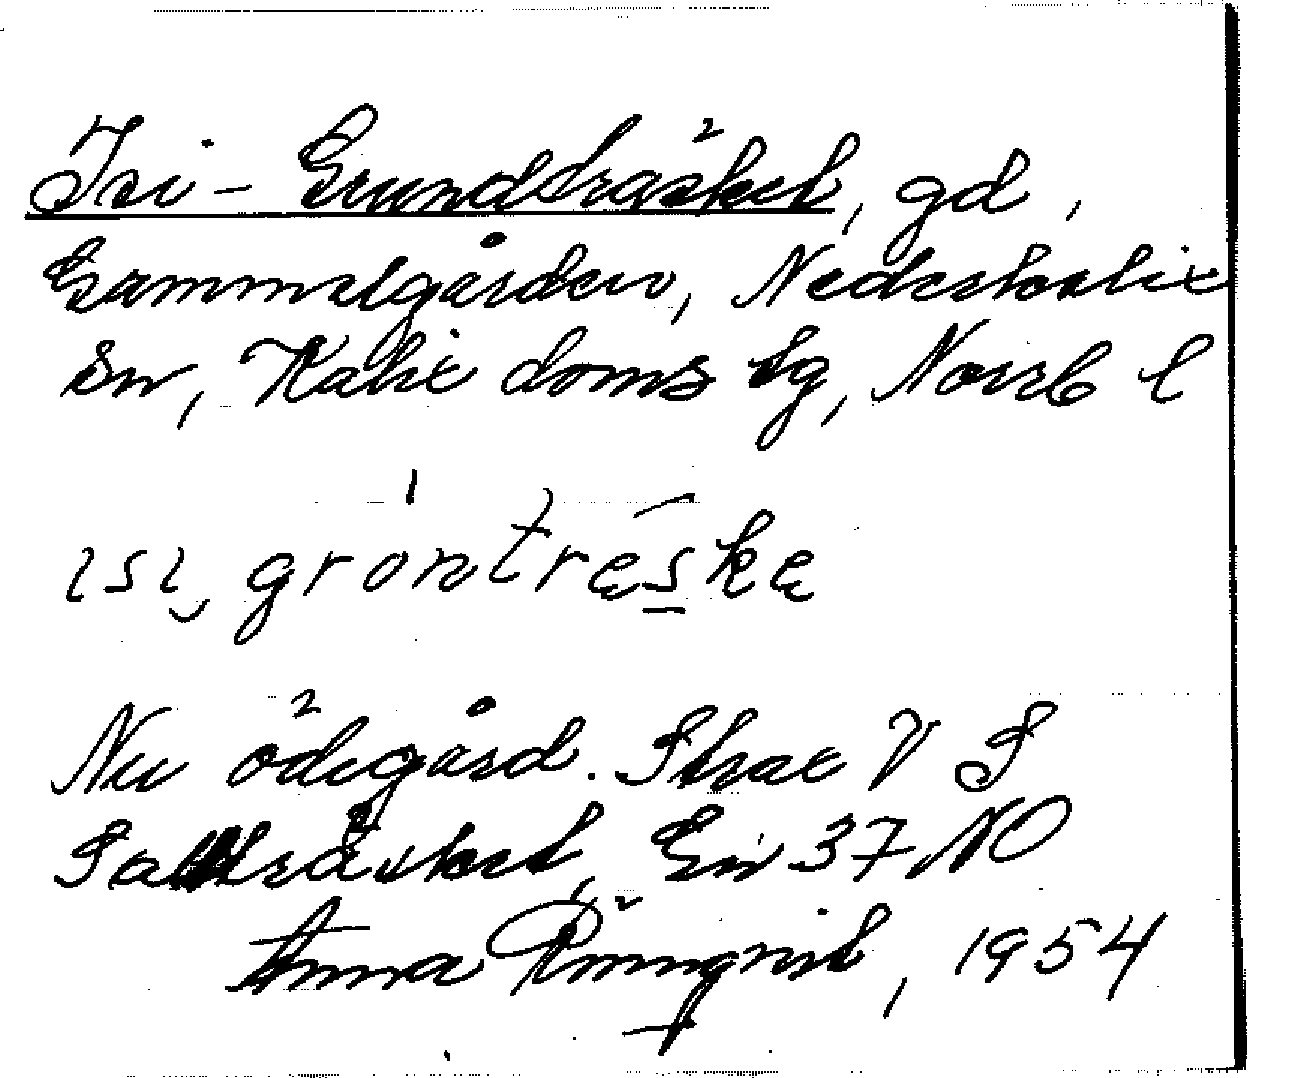 Isi-Grundträsket, gd,
Gammelgården, Nederkalix
sn, Kalix doms lg, Norrb l
ɪsɪ grontręskę
Nu ödegård. Strax V S
träsket, Gin 37 NO
Anna Rönnqvist, 1954